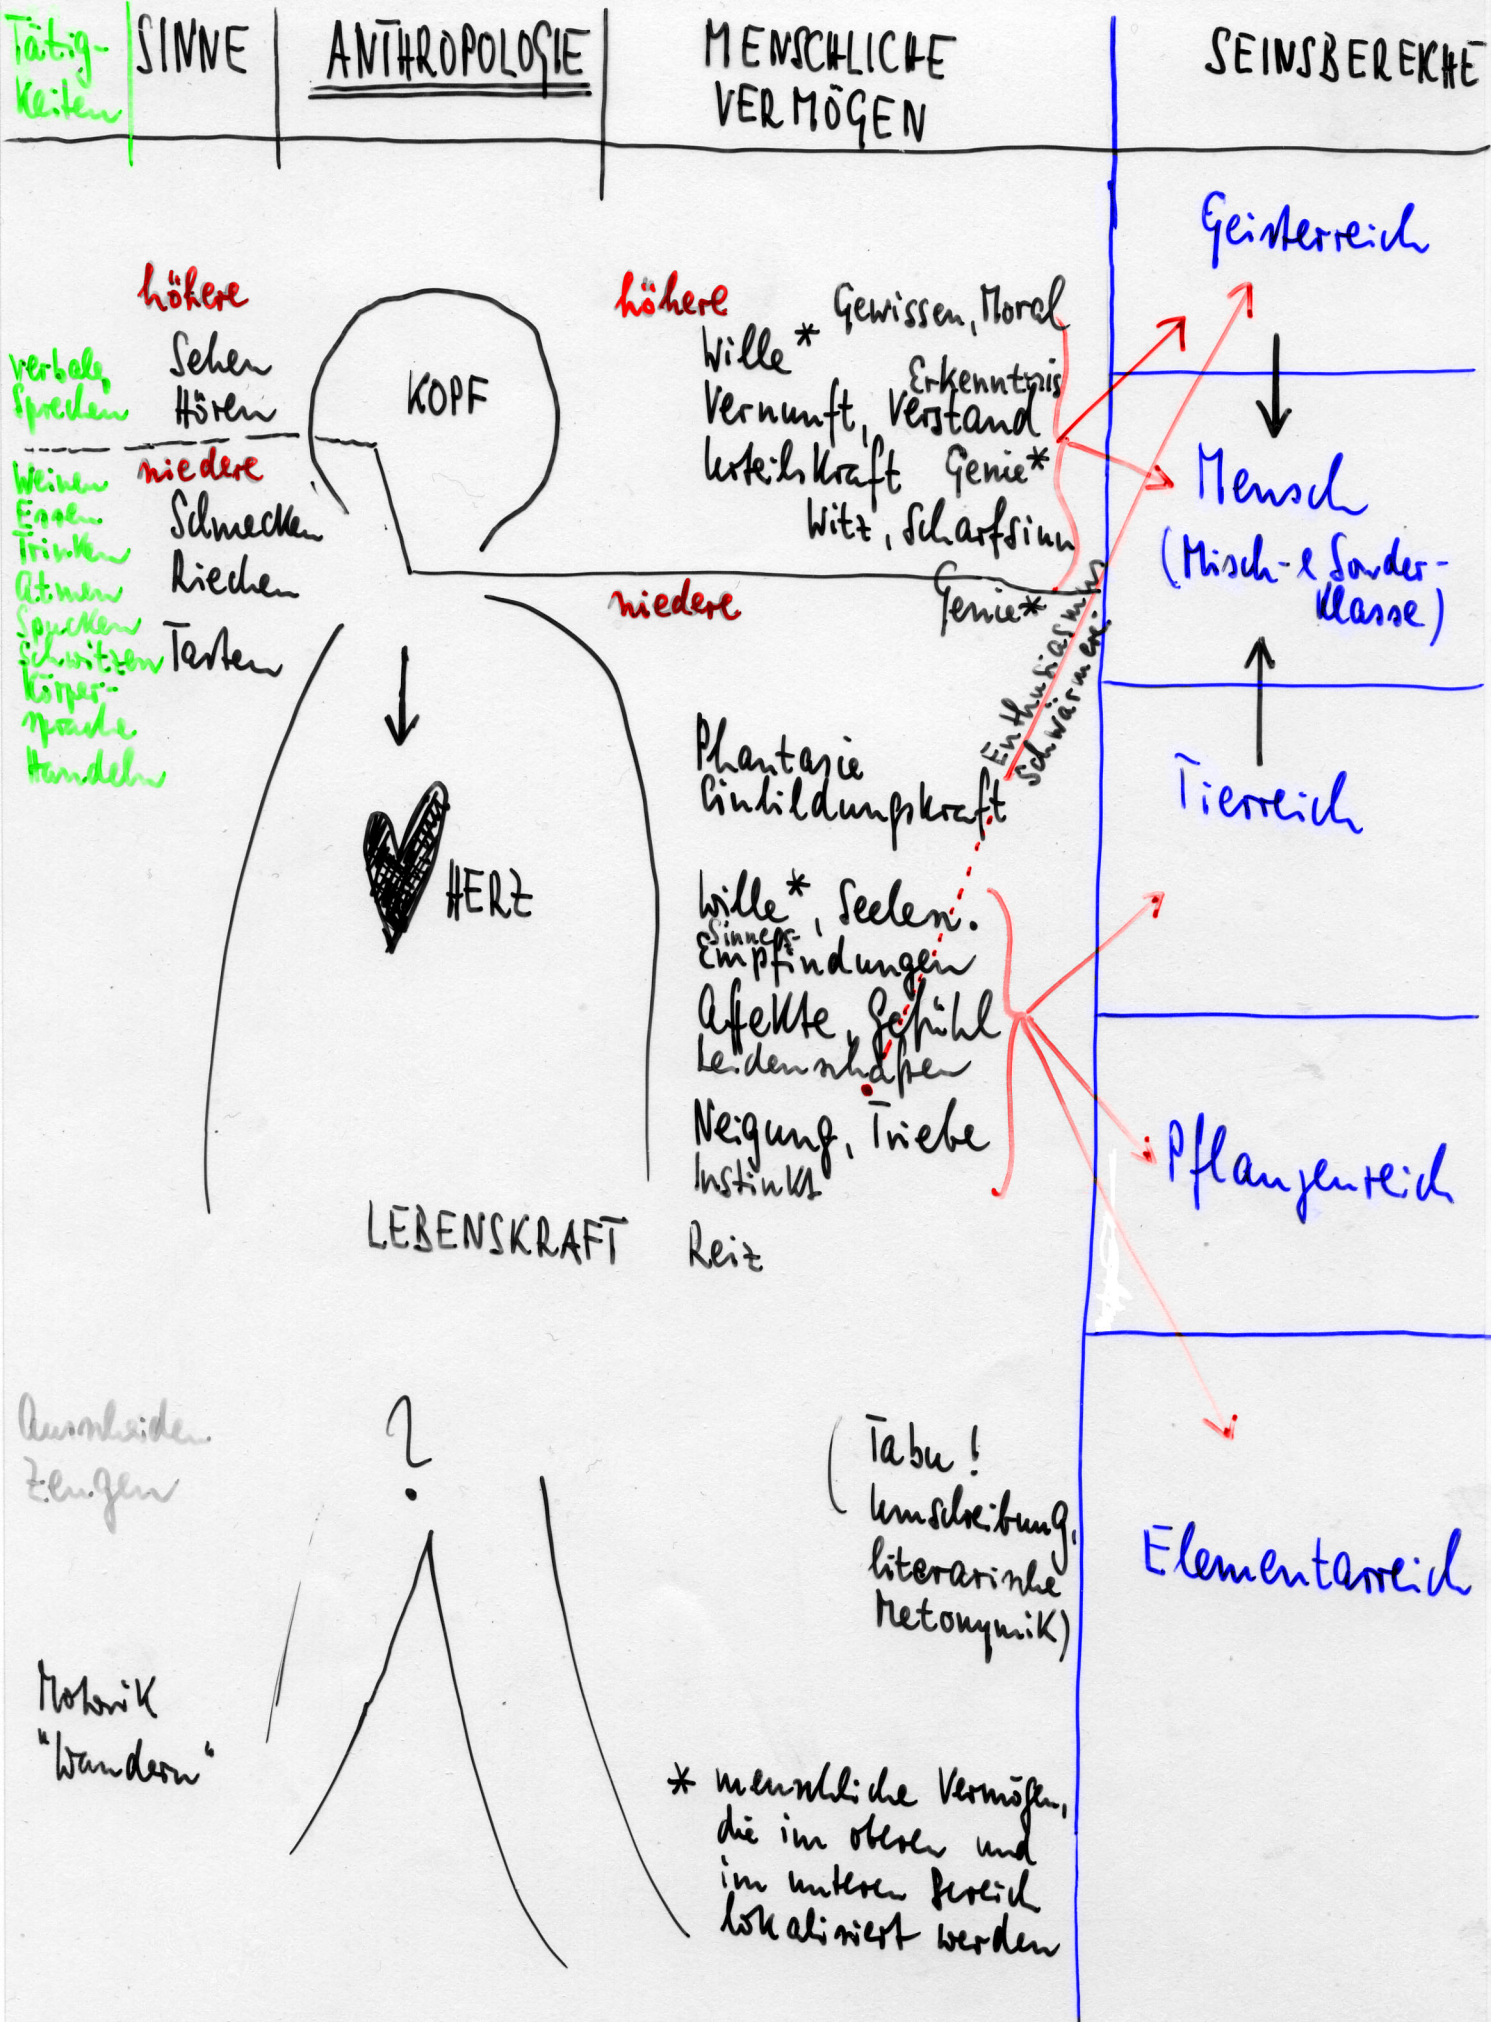 Tätig-
Keiten
SINNE
ANTHROPOLOGIE
MENSCHLICHE
VERMÖGEN
SEINSBEREICHE
verbales
Sprechen
Weinen
Essen
Trinken
Atmen
Spucken
Schwitzen
Körper-
sprache
Handeln
Ausscheiden
Zeugen
Motorik
"Wandern"
höhere
Sehen
Hören
niedere
Schmecken
Riechen
Tasten
KOPF
HERZ
LEBENSKRAFT
?
höhere
Gewissen, Moral
Wille*
Erkenntnis
Vernunft, Verstand
Urteilskraft Genie*
Witz, Scharfsinn
niedere
Genie*
Enthusiasmus
Schwärmerei
Phantasie
Einbildungskraft
Wille*, Seelen-
Sinnes-
Empfindungen
Affekte, Gefühl
Leidenschaften
Neigung, Triebe
Instinkt
Reiz
(Tabu!
Umschreibung,
literarische
Metonymik)
* menschliche Vermögen,
die im oberen und
im unteren Bereich
lokalisiert werden
Geisterreich
Mensch
(Misch- & Sonder-
Klasse)
Tierreich
Pflanzenreich
Elementarreich